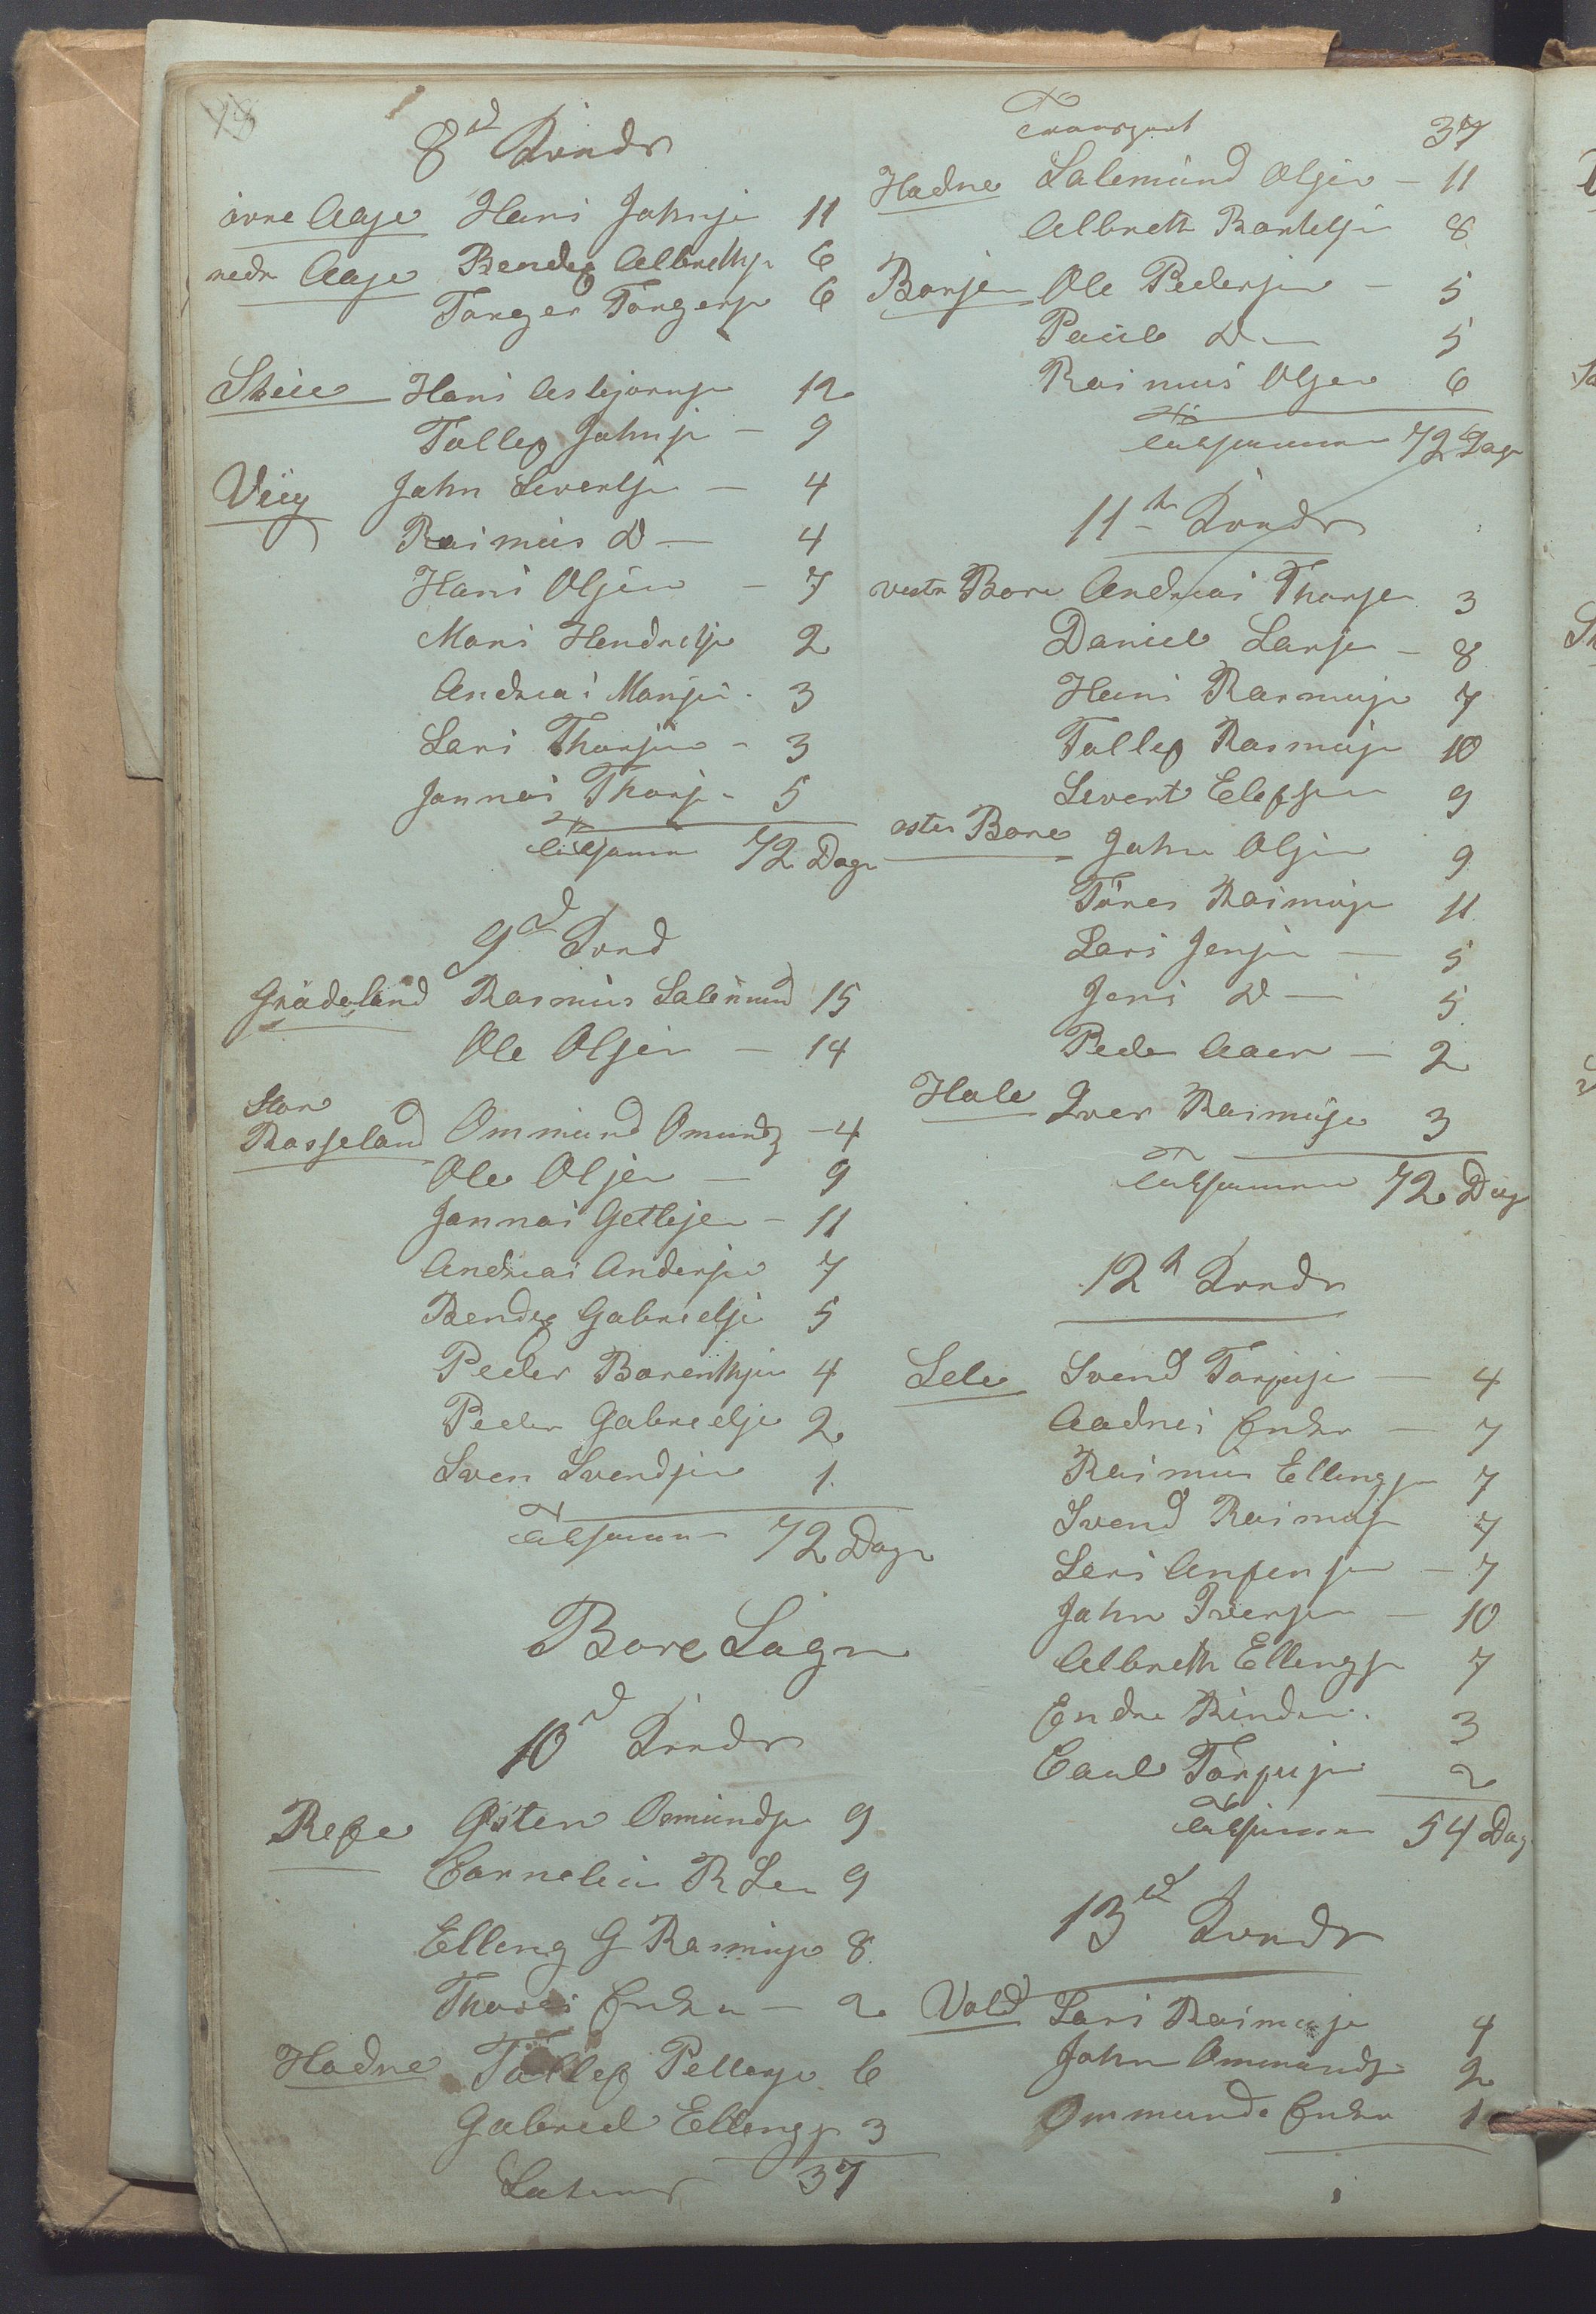 18
8d Kreds
övre Aase Hans Johnsen 11
nedr Aase Bendex Albrethse 6
Torger Torgerse 6
Skeie Hans Asbjornse 12
Tollef Johnse – 9
Viig John Sivertse – 4
Rasmus D – 4
Hans Olsen – 7
Mons Hendrikse 2
Andreas Monsen 3
Lars Thorsen – 3
Jonnas Thors – 5
Tilsamen 72 Dage
9d Kred
Grödeland Rasmus Salemund 15
Ole Olsen – 14
Stor
Rosseland Ommund Omunds – 4
Ole Olsen – 9
Jonnas Getlesen – 11
Andreas Anderse 7
Bendex Gabrielse 5
Peder Borenthsen 4
Peder Gabrielse 2
Sven Svendsen 1.
Tilsamen 72 Dage
Bore Sogn
10d Kreds
Refe Östen Osmundse 9
Cornelius R Le 9
Elleng G Rasmuse 8
Thores Enke – 2
Hodne Tollef Pederse 6
Gabriel Ellengse 3
Latus 37
Transport 37
Hodne Salemund Olsen – 11
Albreth Bortelse 8
Borsen Ole Pedersen – 5
Paul D – 5
Rasmus Olsen 6
Tilsammen 72 Dage
11te Kreds
vestr Bore Andreas Thorse 3
Daniel Larse – 8
Hans Rasmuse 7
Tollef Rasmuse 10
Sivert Elefsen 9
oster Bore John Olsen 9
Töres Rasmuse 11
Lars Jensen – 5
Jens D – 5
Peder Aaen – 2
Hole Iver Rasmuse 3
Tilsammen 72 Dage
12te Kreds
Sele Svend Torjuse – 4
Aadnes Enke – 7
Rasmus Ellengse 7
Svend Rasmuse 7
Lars Anfensen – 7
John Iversen – 10
Albreth Ellengse 7
Endre 3
Carl Torjuse 2
Tilsammen 54 Dag
13d Kreds
Vold Lars Rasmuse 4
John Ommunds 2
Ommunds Enke 1